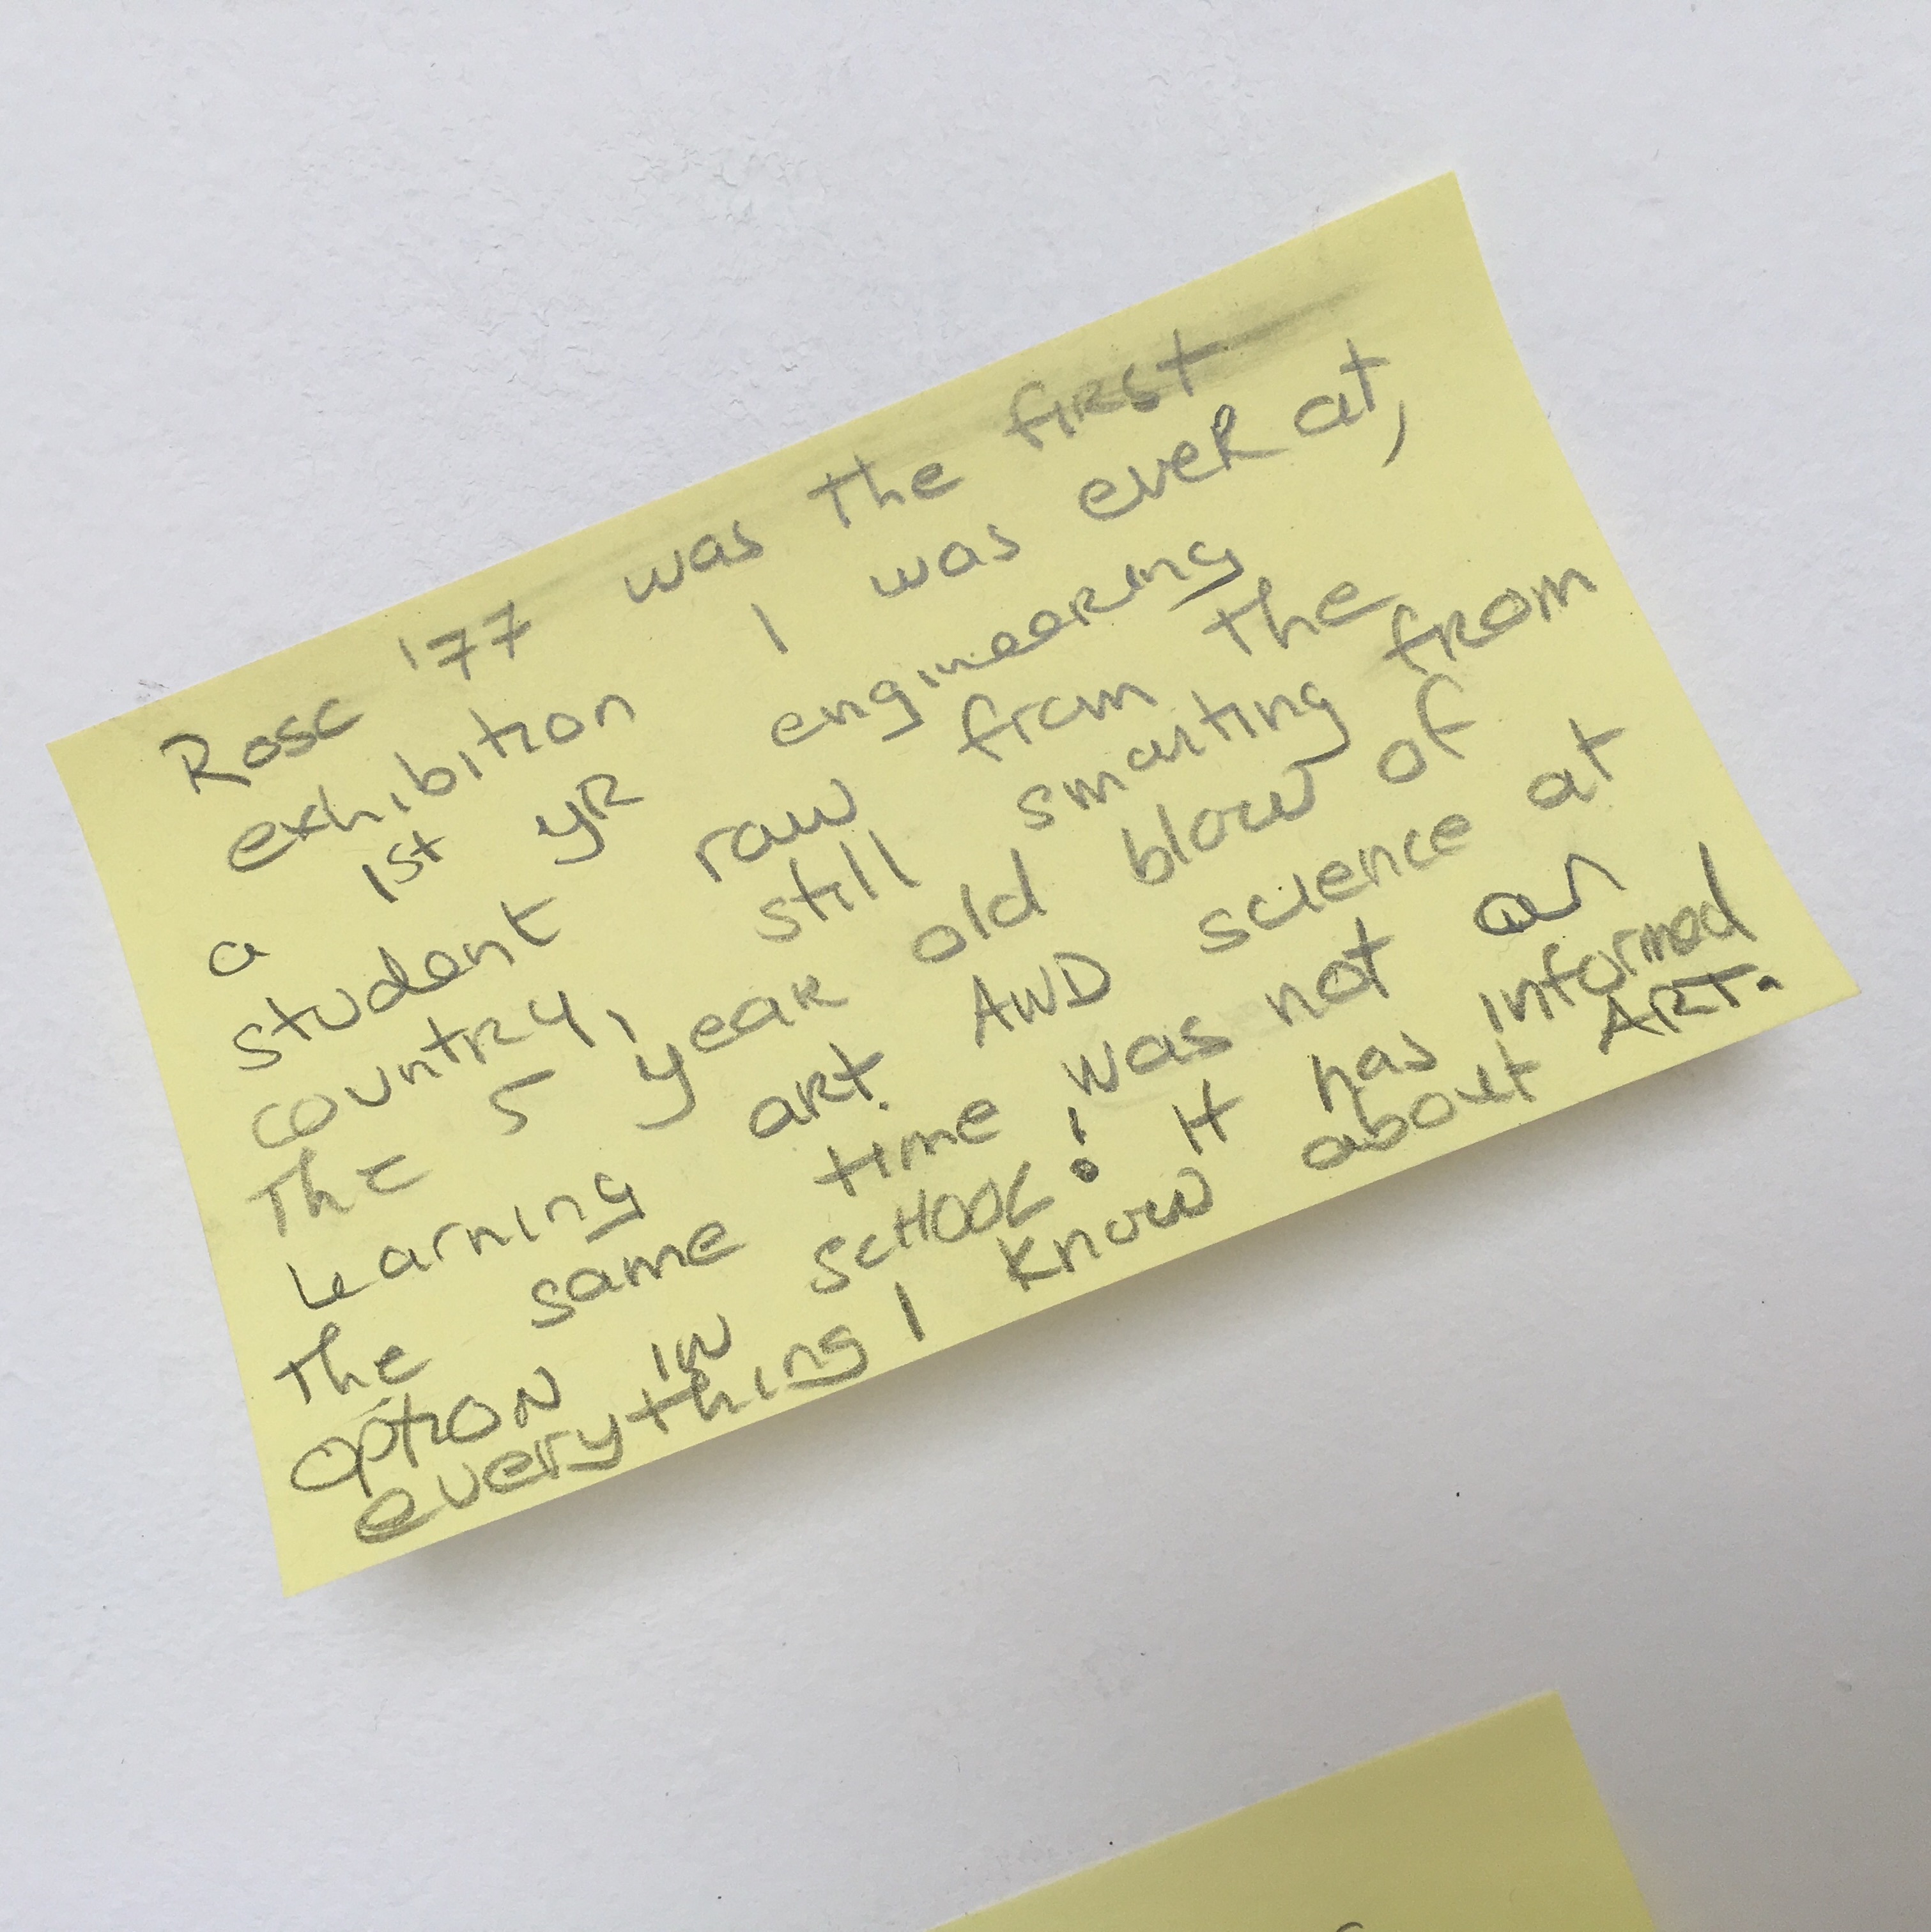 Rosc '77 was the first
exhibition I was ever at,
a 1st yr engineering
student raw from the
country, still smarting from
The 5 year old blow of
Learning art AND science at
the same time was not an
OPTION IN SCHOOL! It has informed
everything I know about ART.